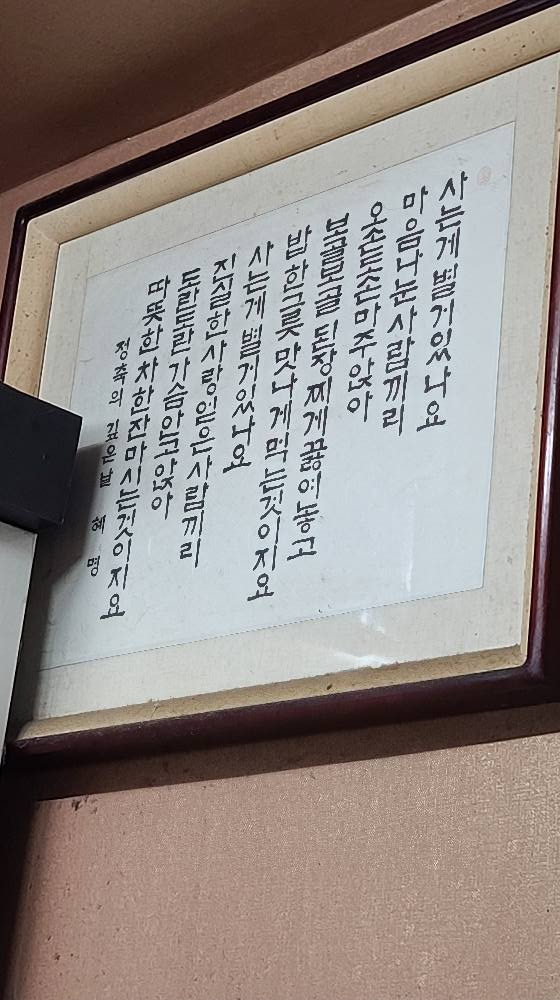 사는게 별거있나요
마음나눈사람끼리
오손도손 마주앉아
보글보글 된장찌게 끓여놓고
밥 한그릇 맛나게 먹는것이지요
사는게 별거있나요
진실한 사랑 얻은 사람끼리
도란도란 가슴안고앉아
따뜻한 차한잔 마시는것이지요
정축의 깊은날 혜명